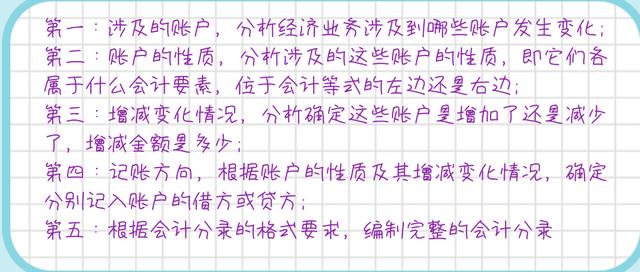 第一：涉及的账户，分析经济业务涉及到哪些账户发生变化;
第二：账户的性质，分析涉及的这些账户的性质，即它们各
属于什么会计要素，位于会计等式的左边还是右边;
第三：增减变化情况，分析确定这些账户是增加了还是减少
了，增减金额是多少;
第四：记账方向，根据账户的性质及其增减变化情况，确定
分别记入账户的借方或贷方;
第五：根据会计分录的格式要求，编制完整的会计分录